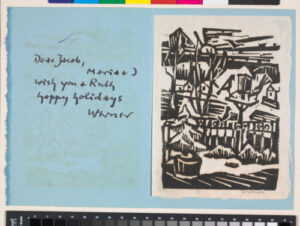 Dear Jacob,
Maria + I
wish you + Ruth
happy holidays
Werner